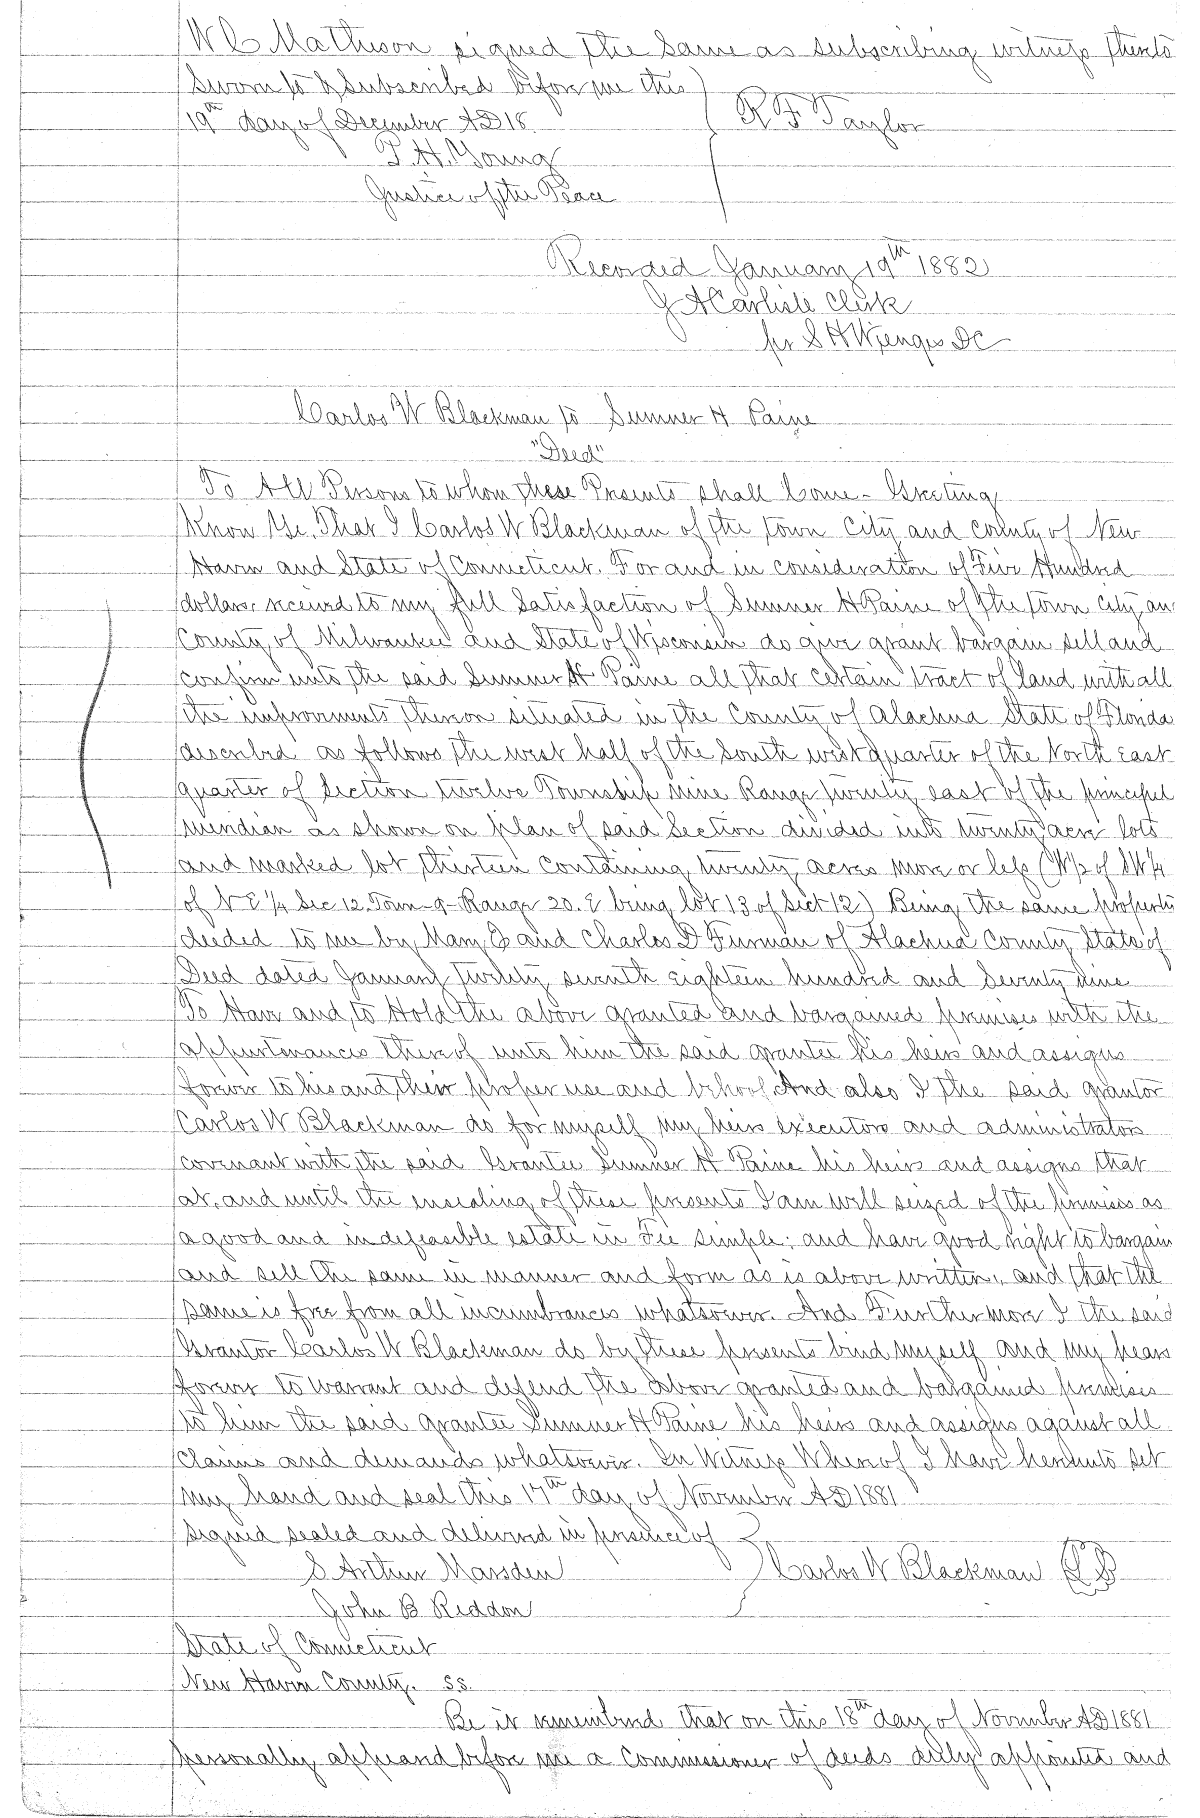 W C Matheson signed the same as subscribing witness thereto
Sworn to & Subscribed before me this
19th day of December AD 18 R F Taylor
T. H. Young
Justice of the Peace
Recorded January 19th 1882
J A Carlisle Clerk
per S H Wienges DC
Carlos W Blackman to Sumner H Paine
"Deed"
To All Persons to whom these Presents shall Come - Greeting
Know Ye, That I Carlos W Blackman of the town City and County of New
Haven and State of Connecticut. For and in consideration of Five Hundred
dollars received to my full Satisfaction of Sumner H Paine of the town city an
County of Milwaukee and State of Wisconsin do give grant bargain sell and
confirm unto the said Sumner H Paine all that certain tract of land with all
the improvements thereon situated in the County of Alachua State of Florida
described as follows the west half of the South west quarter of the North East
quarter of Section twelve Township nine Range twenty east of the principel
meridian as shown on plan of said Section divided into twenty acre lots
and marked lot thirteen containing twenty acres more or less (W 1/2 of SW 1/4
of N E 1/4 Sec 12. Town - 9 - Range 20. E being lot 13 of Sect 12) Being the same property
deeded to me by Mary E and Charles D Furman of Alachua County State of
Deed dated January twenty seventh eighteen hundred and Seventy nine
To Have and to Hold the above granted and bargained premises with the
appurtenances thereof unto him the said grantee his heirs and assigns
forever to his and their proper use and behoof. And also I the said grantor
Carlos W Blackman do for myself my heirs executors and administrators
covenant with the said Grantee Sumner H Paine his heirs and assigns that
at, and until the ensealing of these presents I am well seized of the premises as
a good and indefeasible estate in Fee simple; and have good right to bargain
and sell the same in manner and form as is above written, and that the
same is free from all incumbrances whatsoever. And Furthermore I the said
Grantor Carlos W Blackman do by these presents bind myself and my hears
forever to warrant and defend the above granted and bargained premises
to him the said grantee Sumner H Paine his heirs and assigns against all
claims and demands whatsoever. In Witness Whereof I have hereunto set
my hand and seal this 17th day of November AD 1881
signed sealed and delivered in presence of
S Arthur Marsden Carlos W Blackman
John B Reddon
State of Connecticut
New Haven County. ss.
Be it remembered that on this 18th day of November AD 1881
personally appeared before me a Commissioner of deeds duly appointed and